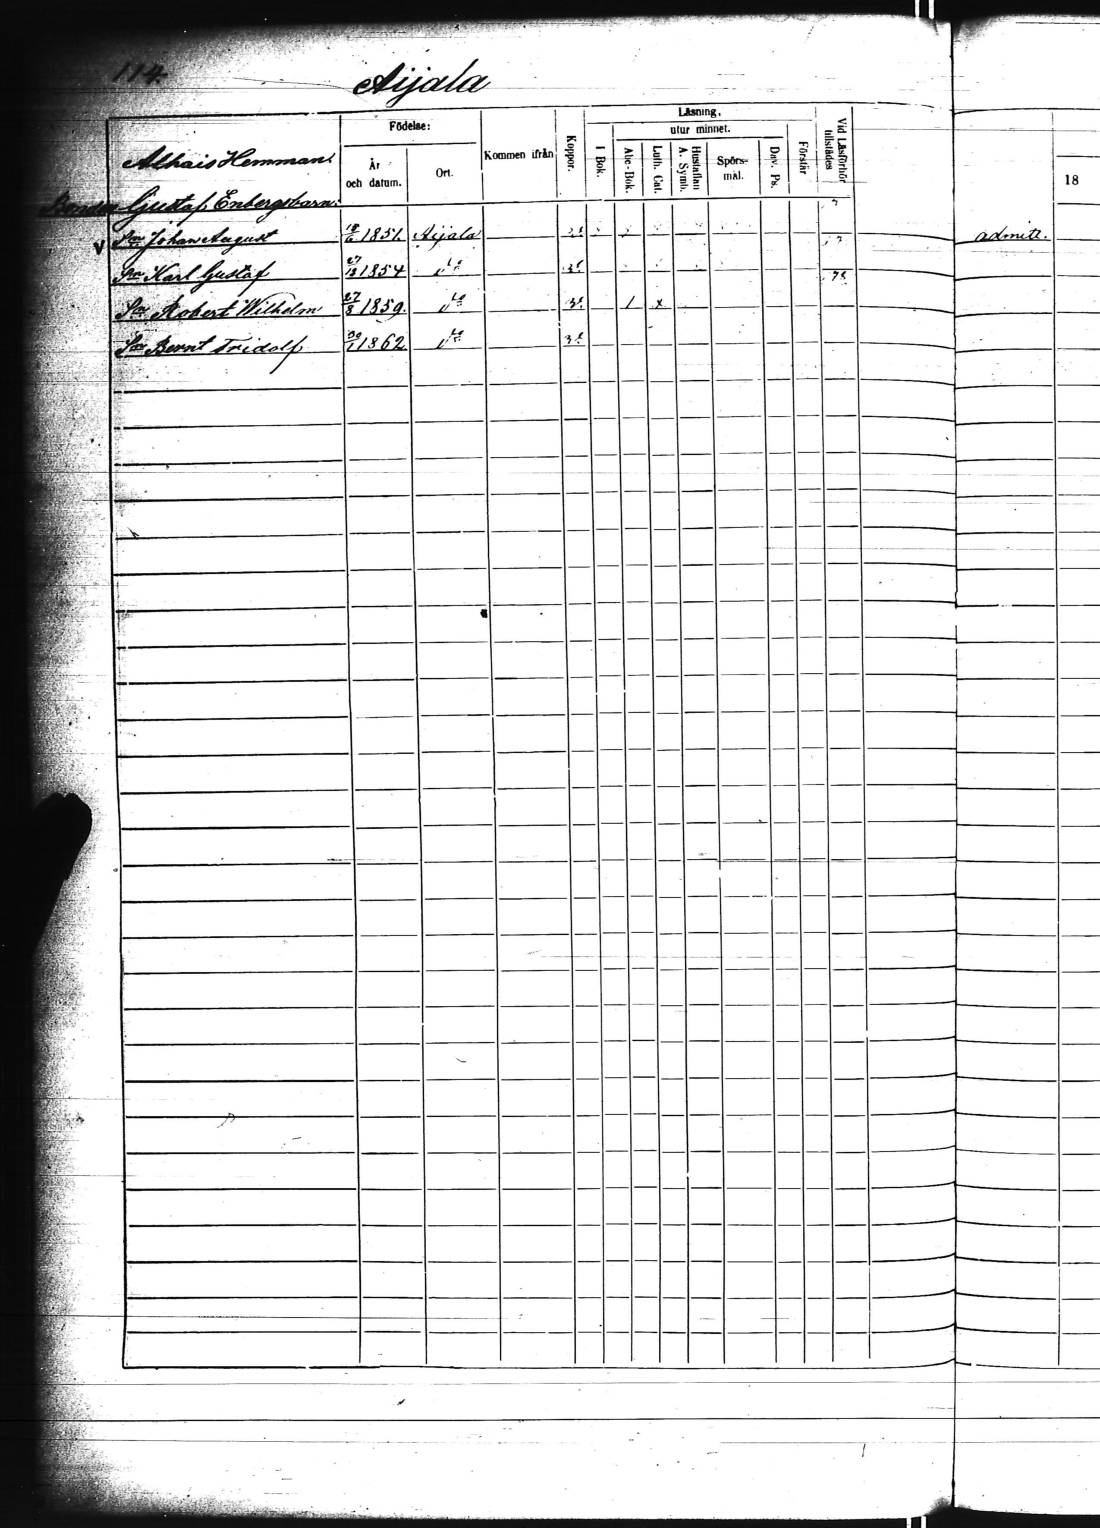 114.
Aijala
Alhais Hemman.
Födelse:
År och datum.
Ort.
Kommen ifrån
Koppor.
Läsning,
utur minnet.
I Bok.
Abc-Bok.
Luth. Cat.
Hustaflan A. Symb.
Spörs-mål.
Dav. Ps.
Förstår
Vid Läsförhör tillstädes
18
Bonden Gustaf Enbergs barn:
V Son Johan August 1851. Aijala admitt.
Son Karl Gustaf 27/12 1854 d:o
Son Robert Wilhelm 27/8 1859. d:o 1 x
Son Bernt Fridolf 30/1 1862 d:o